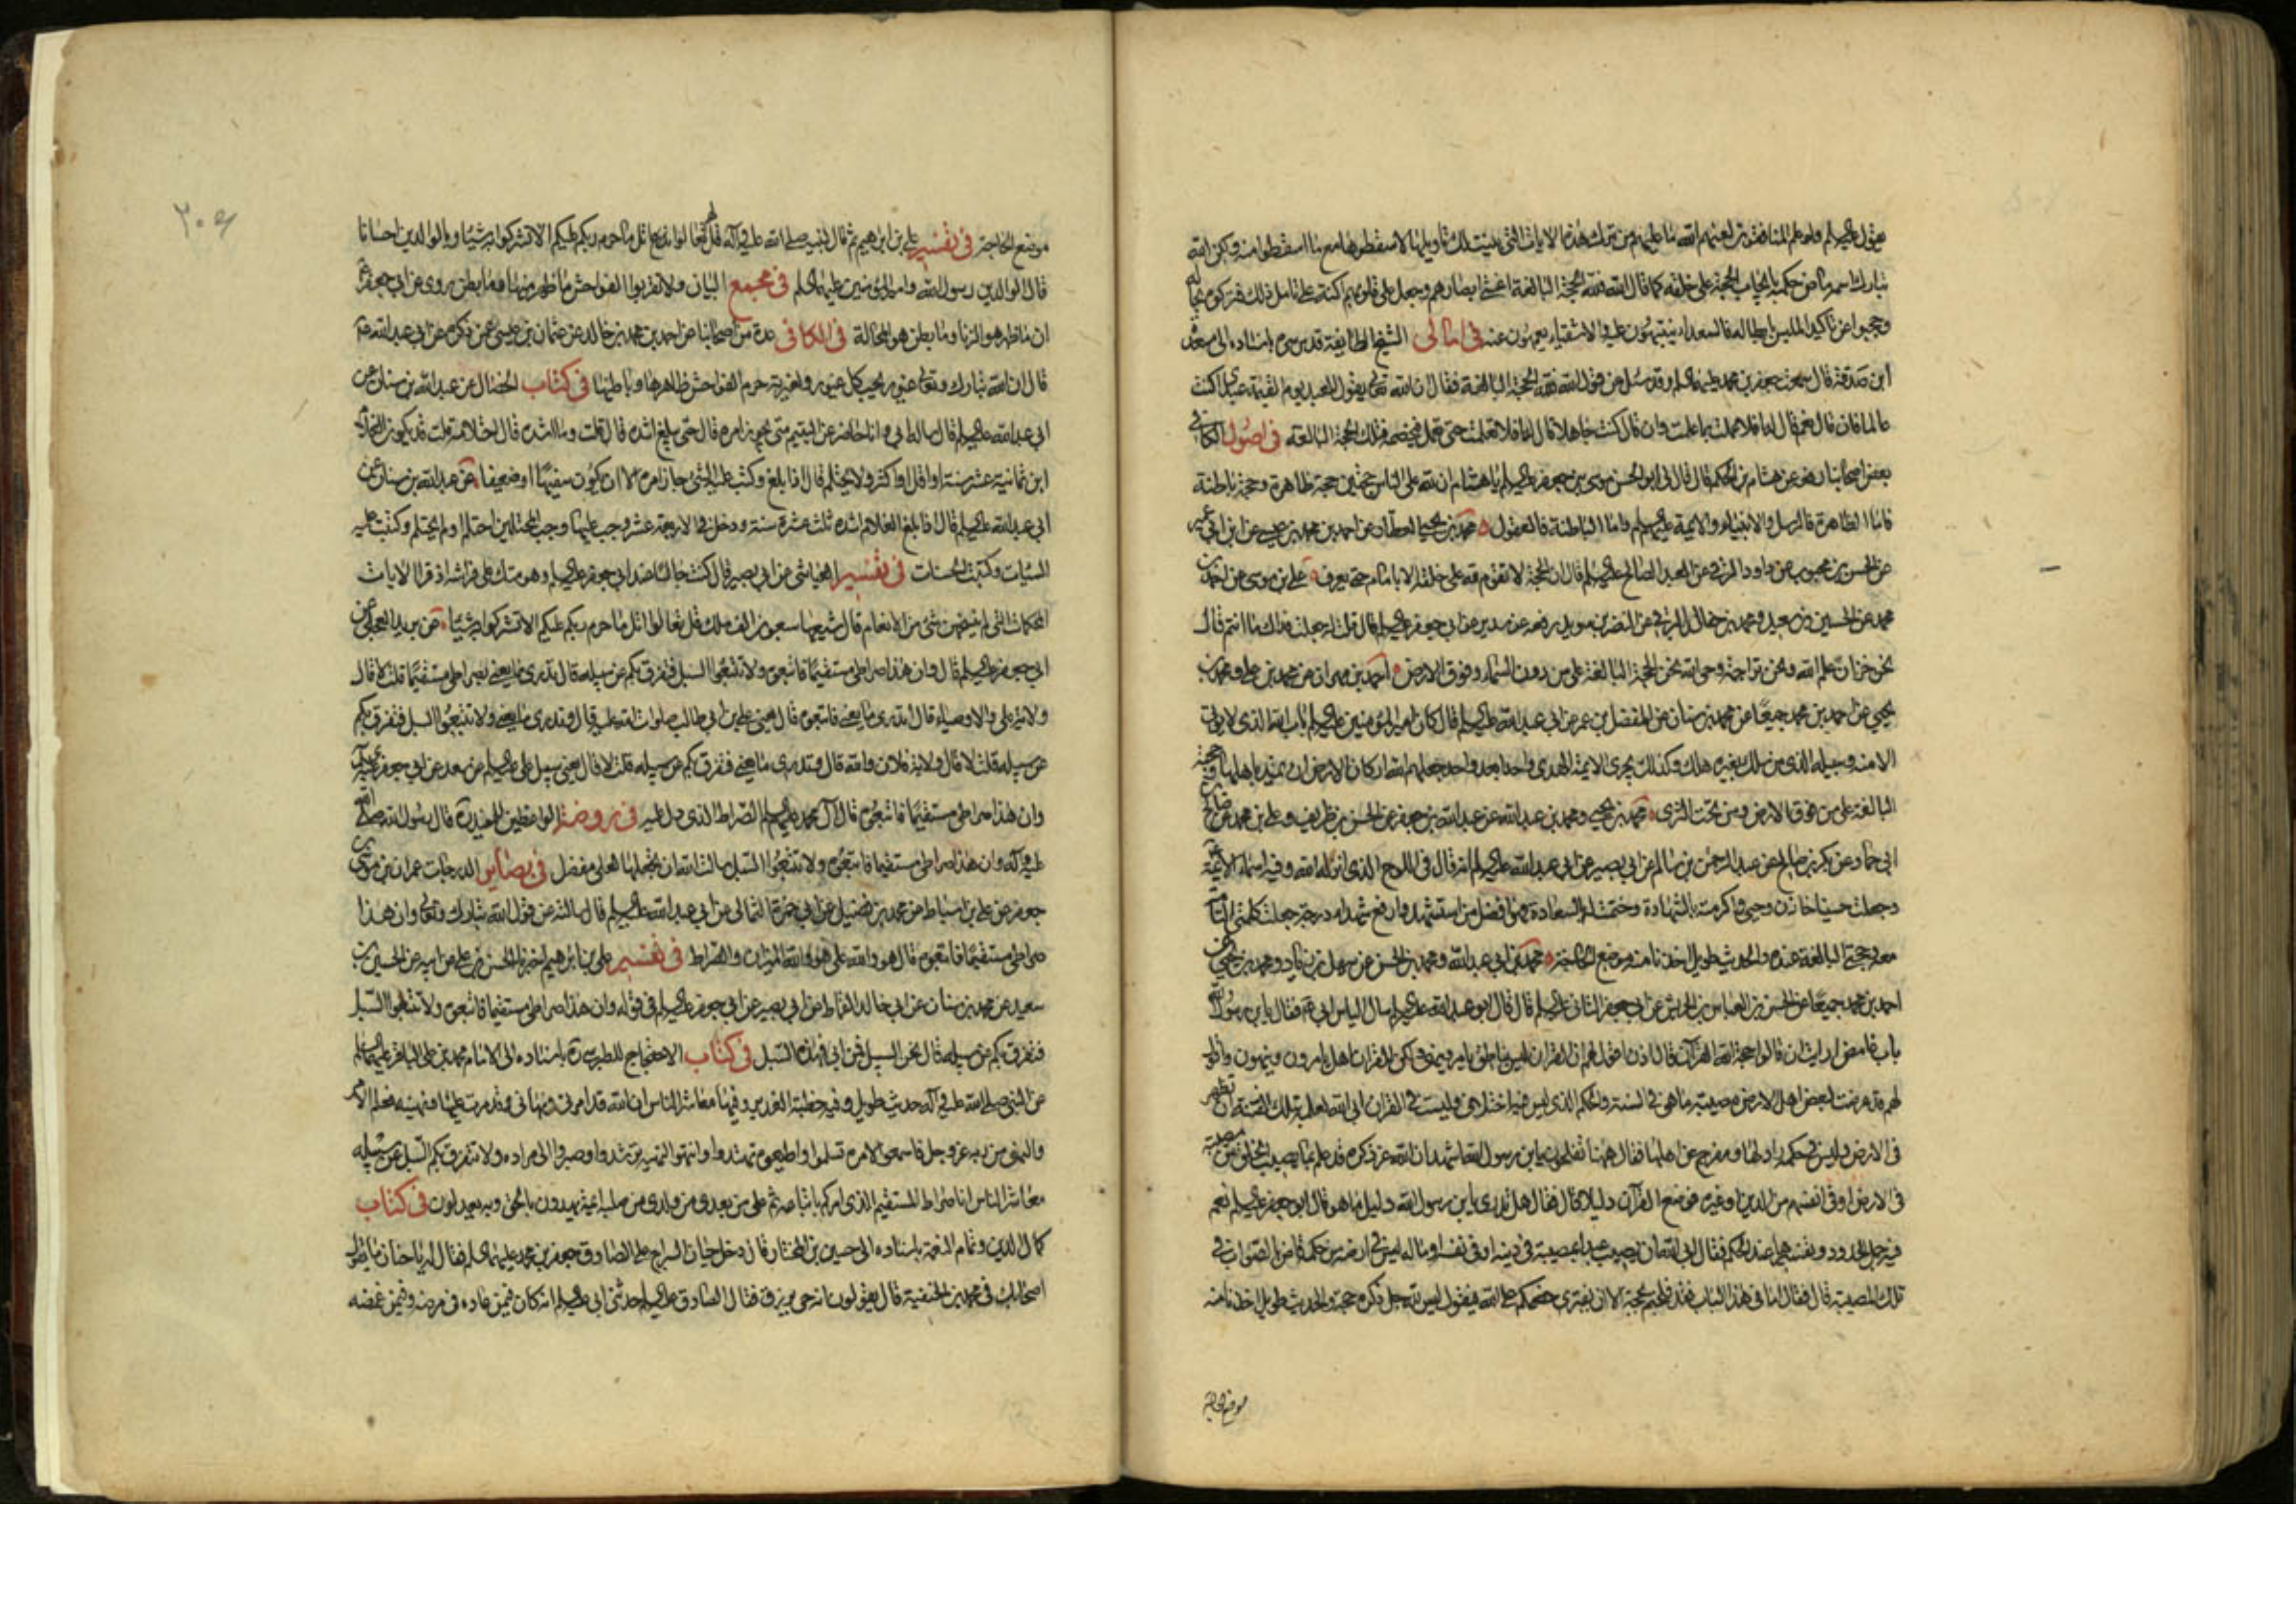 يقول عليه السلم ولو علم المنافقون لعنهم الله ما عليهم من ترك هذه الايات التي بينت لك تاويلها لاسقطوها مع ما اسقطوا منه ولكن الله
تبارك اسمه ماض حكمه بايجاب الحجة على خلقه كما قال الله فلله الحجة البالغة اغشى ابصارهم وجعل على قلوبهم اكنة عن تامل ذلك فتركوه بحاله
وحجبوا عن تاكيد الملبس بابطاله فالسعداء ينتبهون عليه والاشقياء يعمهون عنه في امالي الشيخ الطايفة قدس سره باسناده الى مسعدة
ابن صدقة قال سمعت جعفر بن محمد عليهما السلم وقد سئل عن قول الله فلله الحجة البالغة فقال ان الله تعالى يقول للعبد يوم القيمة عبدي اكنت
عالما فان قال نعم قال له افلا عملت بما علمت وان قال كنت جاهلا قال له افلا تعلمت حتى تعمل فيخصمه فتلك الحجة البالغة في اصول الكافي
بعض اصحابنا رفعه عن هشام بن الحكم قال قال لي ابو الحسن موسى بن جعفر عليه السلم يا هشام ان لله على الناس حجتين حجة ظاهرة وحجة باطنة
فاما الظاهرة فالرسل والانبياء والائمة عليهم السلم واما الباطنة فالعقول محمد بن يحيى العطار عن احمد بن محمد بن عيسى عن ابن ابي عمير
عن الحسن بن محبوب عن داود الرقي عن العبد الصالح عليه السلم قال ان الحجة لا تقوم لله على خلقه الا بامام حتى يعرف علي بن موسى عن احمد بن
محمد عن الحسين بن سعيد ومحمد بن خالد البرقي عن النضر بن سويد رفعه عن سدير عن ابي جعفر عليه السلم قال قلت له جعلت فداك ما انتم قال
نحن خزان علم الله ونحن تراجمة وحي الله نحن الحجة البالغة على من دون السماء وفوق الارض احمد بن مهران عن محمد بن علي ومحمد بن
يحيى عن احمد بن محمد جميعا عن محمد بن سنان عن المفضل بن عمر عن ابي عبد الله عليه السلم قال كان امير المؤمنين عليه السلم باب الله الذي لا يؤتى
الا منه وسبيله الذي من سلك بغيره هلك وكذلك يجري الائمة الهدى واحدا بعد واحد جعلهم الله اركان الارض ان تميد باهلها وحجته
البالغة على من فوق الارض ومن تحت الثرى محمد بن يحيى ومحمد بن عبد الله عن عبد الله بن جعفر عن الحسن بن ظريف وعلي بن محمد عن صالح بن
ابي حماد عن بكر بن صالح عن عبد الرحمن بن سالم عن ابي بصير عن ابي عبد الله عليه السلم انه قال في اللوح الذي انزله الله وفيه اسماء الائمة
وجعلت حسينا خازن وحيي واكرمته بالشهادة وختمت له بالسعادة فهو افضل من استشهد وارفع شهداء درجة جعلت كلمتي التامة
معه وحجتي البالغة عنده والحديث طويل اخذنا منه موضع الحاجة محمد بن ابي عبد الله ومحمد بن الحسن عن سهل بن زياد ومحمد بن يحيى عن
احمد بن محمد جميعا عن الحسن بن العباس بن الحريش عن ابي جعفر الثاني عليه السلم قال قال ابو عبد الله عليه السلم سال الياس ابي فقال يا بن رسول الله
باب غامض ارايت ان قالوا حجة الله القرآن قال اذن اقول لهم ان القران ليس بناطق يامر وينهى ولكن للقران اهل يامرون وينهون واقول
لهم قد عرضت لبعض اهل الارض مصيبة ما هي في السنة والحكم الذي ليس فيه اختلاف وليست في القران ابى الله لعلمه بتلك الفتنة ان تظهر
في الارض وليس في حكمه راد لها ومفرج عن اهلها فقال ههنا تفلجون يا بن رسول الله اشهد ان الله عز ذكره قد علم بما يصيب الخلق من مصيبة
في الارض او في انفسهم من الدين او غيره فوضع القرآن دليلا قال فقال هل تدري يا بن رسول الله دليل ما هو قال ابو جعفر عليه السلم نعم
فيه جمل الحدود وتفسيرها عند الحكم فقال ابى الله ان يصيب عبدا بمصيبة في دينه او في نفسه او ماله ليس في ارضه من حكمه قاض بالصواب في
تلك المصيبة قال فقال اما في هذا الباب فقد فلجتم بحجة الا ان يفتري خصمكم على الله فيقول ليس لله جل ذكره حجة والحديث طويل اخذنا منه
موضع الحاجة
٣٠٩
موضع الحاجة في تفسير علي بن ابراهيم ثم قال لنبيه صلى الله عليه وآله قل لهم تعالوا اتل ما حرم ربكم عليكم الا تشركوا به شيئا وبالوالدين احسانا
قال الوالدين رسول الله وامير المؤمنين عليهما السلم في مجمع البيان ولا تقربوا الفواحش ما ظهر منها وما بطن روى عن ابي جعفر
ان ما ظهر هو الزنا وما بطن هو المخالة في الكافي عدة من اصحابنا عن احمد بن محمد بن خالد عن عثمان بن عيسى عمن ذكره عن ابي عبد الله
قال ان الله تبارك وتعالى غيور يحب كل غيور ولغيرته حرم الفواحش ظاهرها وباطنها في كتاب الخصال عن عبد الله بن سنان عن
ابي عبد الله عليه السلم قال ساله ابي وانا حاضر عن اليتيم متى يجوز امره قال حتى يبلغ اشده قال قلت وما اشده قال احتلامه قلت قد يكون الغلام
ابن ثمانية عشر سنة او اقل او اكثر ولا يحتلم قال اذا بلغ وكتب عليه الشيء جاز امره الا ان يكون سفيها او ضعيفا عن عبد الله بن سنان عن
ابي عبد الله عليه السلم قال اذا بلغ الغلام اشده ثلث عشرة سنة ودخل في الاربعة عشر وجب عليه ما وجب على المحتلمين احتلم او لم يحتلم وكتبت عليه
السيئات وكتبت له الحسنات في تفسير العياشي عن ابي بصير قال كنت جالسا عند ابي جعفر عليه السلم وهو متك على فراشه اذ قرا الايات
المحكمات التي لم ينسخهن شيء من الانعام قال شيعها سبعون الف ملك قل تعالوا اتل ما حرم ربكم عليكم الا تشركوا به شيئا عن بريد العجلي عن
ابي جعفر عليه السلم قال وان هذا صراطي مستقيما فاتبعوه ولا تتبعوا السبل فتفرق بكم عن سبيله قال تدري ما يعني بصراطي مستقيما قلت لا قال
ولاية علي والاوصياء قال اتدري ما يعني فاتبعوه قال يعني علي بن ابي طالب صلوات الله عليه قال وتدري ما يعني ولا تتبعوا السبل فتفرق بكم
عن سبيله قلت لا قال ولاية فلان والله قال وتدري ما يعني فتفرق بكم عن سبيله قلت لا قال يعني سبيل علي عليه السلم عن سعد عن ابي جعفر
وان هذا صراطي مستقيما فاتبعوه قال آل محمد عليهم السلم الصراط الذي دل عليه في روضة الواعظين للمفيد قال رسول الله صلى الله
عليه وآله وان هذا صراطي مستقيما فاتبعوه ولا تتبعوا السبل سالت الله ان يجعلها لعلي ففعل في بصاير الدرجات عمران بن موسى بن
جعفر عن علي بن اسباط عن محمد بن فضيل عن ابي حمزة الثمالي عن ابي عبد الله عليه السلم قال سالته عن قول الله تبارك وتعالى وان هذا
صراطي مستقيما فاتبعوه قال هو والله علي هو والله الميزان والصراط في تفسير علي بن ابراهيم اخبرنا الحسن بن علي عن ابيه عن الحسين بن
سعيد عن محمد بن سنان عن ابي خالد القماط عن ابي بصير عن ابي جعفر عليه السلم في قوله وان هذا صراطي مستقيما فاتبعوه ولا تتبعوا السبل
فتفرق بكم عن سبيله قال نحن السبيل فمن ابى فهذه السبل في كتاب الاحتجاج للطبرسي باسناده الى الامام محمد بن علي الباقر عليهما السلم
عن النبي صلى الله عليه وآله حديث طويل وفيه خطبة الغدير وفيها معاشر الناس ان الله قد امرني ونهاني وقد امرت عليا ونهيته فعلم الامر
والنهي من ربه عز وجل فاسمعوا لامره تسلموا واطيعوه تهتدوا وانتهوا لنهيه ترشدوا وصيروا الى مراده ولا تتفرق بكم السبل عن سبيله
معاشر الناس انا صراط المستقيم الذي امركم باتباعه ثم علي من بعدي ثم ولدي من صلبه ائمة يهدون بالحق وبه يعدلون في كتاب
كمال الدين وتمام النعمة باسناده الى حسين بن المختار قال دخل حيان السراج على الصادق جعفر بن محمد عليهما السلم فقال له يا حيان ما يقول
اصحابك في محمد بن الحنفية قال يقولون انه حي يرزق فقال الصادق عليه السلم حدثني ابي عليه السلم انه كان فيمن عاده في مرضه وفيمن غمضه